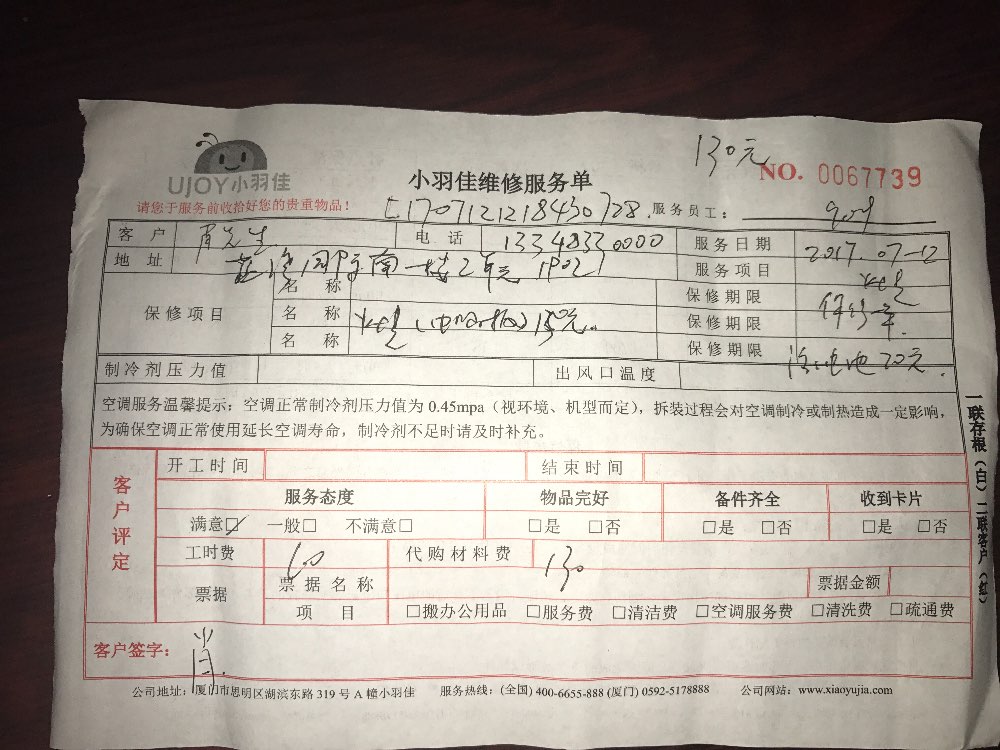 130元
UJOY小羽佳
小羽佳维修服务单
NO. 0067739
请您于服务前收拾好您的贵重物品!
服务员工:
客户 肖先生 电话 13348330000 服务日期 2017.07-12
地址 服务项目
保修项目
名称 保修期限
名称 保修期限
名称 保修期限
制冷剂压力值 出风口温度
空调服务温馨提示:空调正常制冷剂压力值为 0.45mpa(视环境、机型而定),拆装过程会对空调制冷或制热造成一定影响,
为确保空调正常使用延长空调寿命,制冷剂不足时请及时补充。
客户评定
开工时间 结束时间
服务态度 物品完好 备件齐全 收到卡片
满意☑ 一般□ 不满意□ □是 □否 □是 □否 □是 □否
工时费 代购材料费 130
票据 票据名称 票据金额
项目 □搬办公用品 □服务费 □清洁费 □空调服务费 □清洗费 □疏通费
客户签字: 肖
公司地址:厦门市思明区湖滨东路 319 号 A 幢小羽佳 服务热线:(全国) 400-6655-888 (厦门) 0592-5178888 公司网站:www.xiaoyujia.com
一联存根(白)二联客户(红)